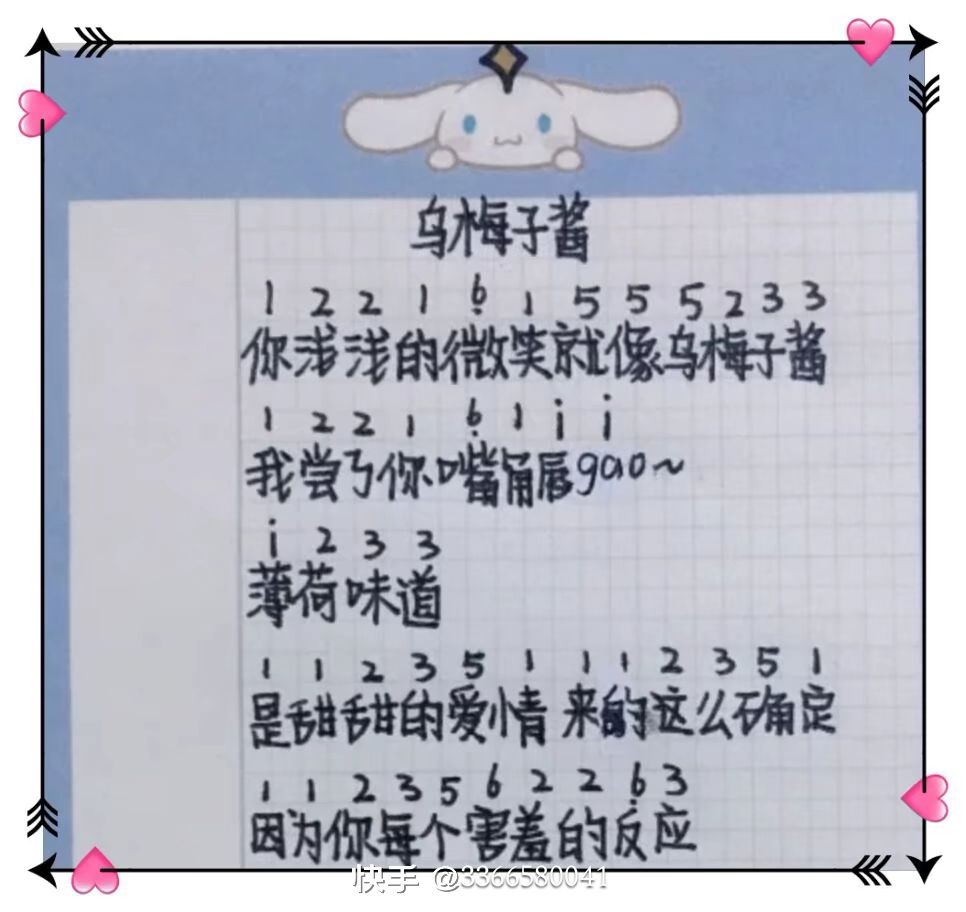 乌梅子酱
1 2 2 1 6̣ 1 5 5 5 2 3 3
你浅浅的微笑就像乌梅子酱
1 2 2 1 6̣ 1 i i
我尝了你嘴角唇gao~
i 2 3 3
薄荷味道
1 1 2 3 5 1 1 1 2 3 5 1
是甜甜的爱情 来的这么确定
1 1 2 3 5 6 2 2 6̣ 3
因为你每个害羞的反应
快手 @3366580041